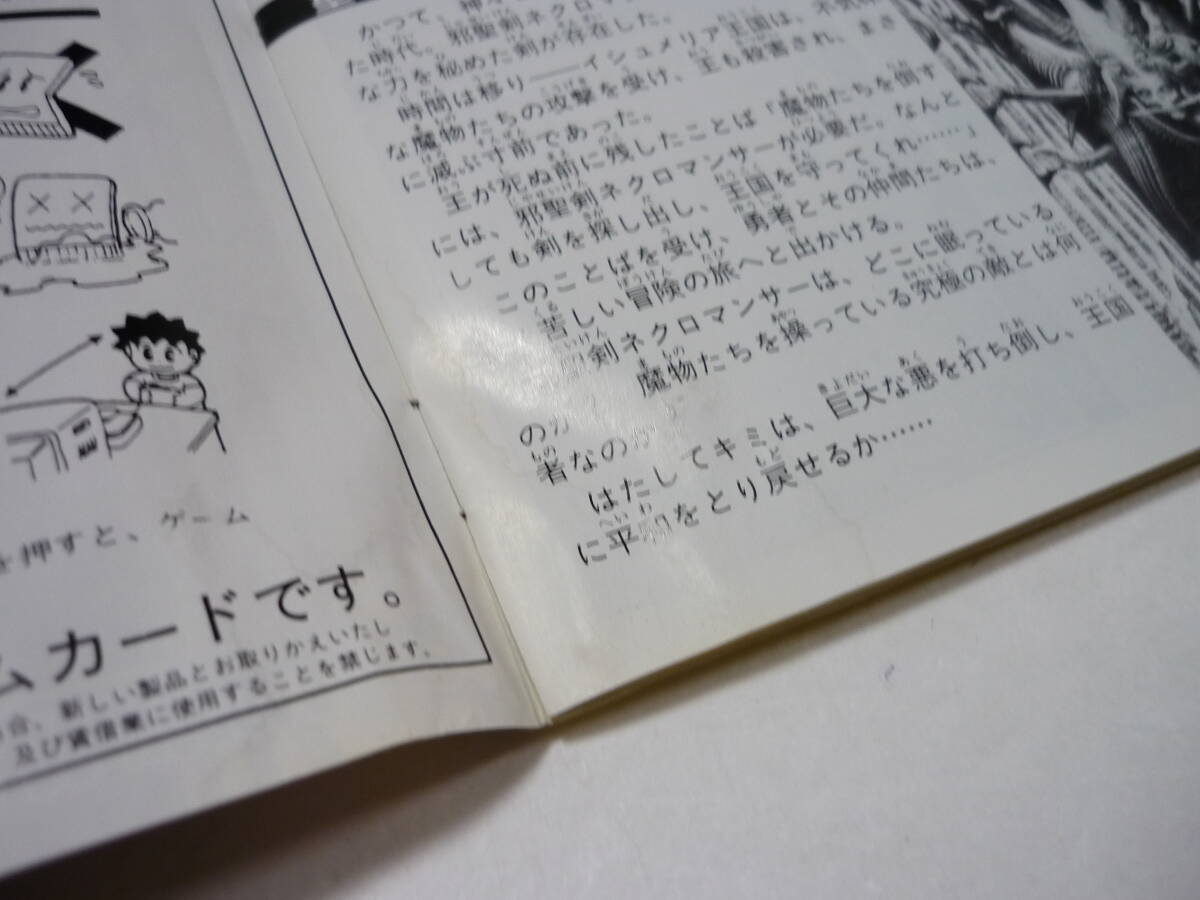 を押すと、ゲーム
ムカードです。
合、新しい製品とお取りかえいたし
及び賃借業に使用することを禁じます。
かつて、神々
た時代。邪聖剣ネクロマン
な力を秘めた剣が存在した。
時間は移り――イシュメリア王国は、不気味
な魔物たちの攻撃を受け、王も殺害され、まさ
に滅ぶ寸前であった。
王が死ぬ前に残したことば「魔物たちを倒す
には、邪聖剣ネクロマンサーが必要だ。なんと
しても剣を探し出し、王国を守ってくれ……」
このことばを受け、勇者とその仲間たちは、
苦しい冒険の旅へと出かける。
剣ネクロマンサーは、どこに眠っている
のか
魔物たちを操っている究極の敵とは何
者なのか
はたしてキミは、巨大な悪を打ち倒し、王国
に平和をとり戻せるか……